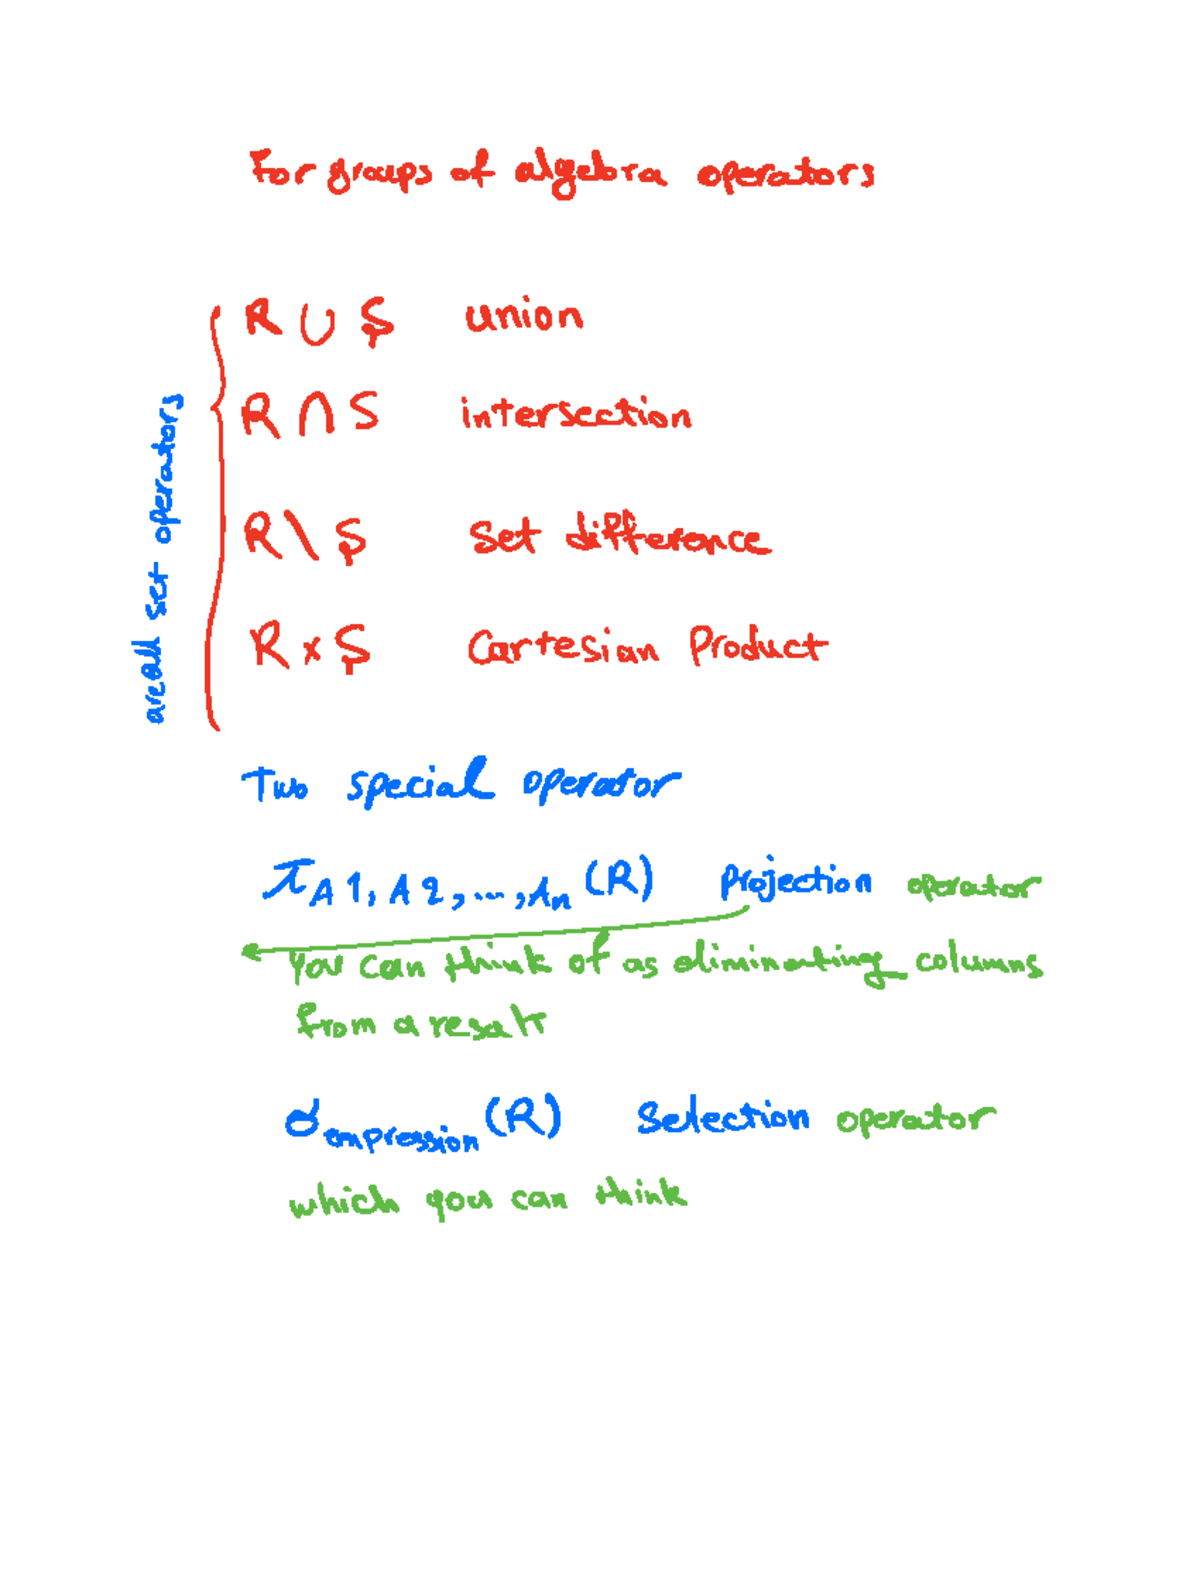 For groups of algebra operators
R ∪ S union
R ∩ S intersection
R \ S Set difference
R × S Cartesian Product
are all set operators
Two special operator
π A1, A2, ..., An (R) Projection operator
you can think of as eliminating columns
from a result
σ expression (R) Selection operator
which you can think